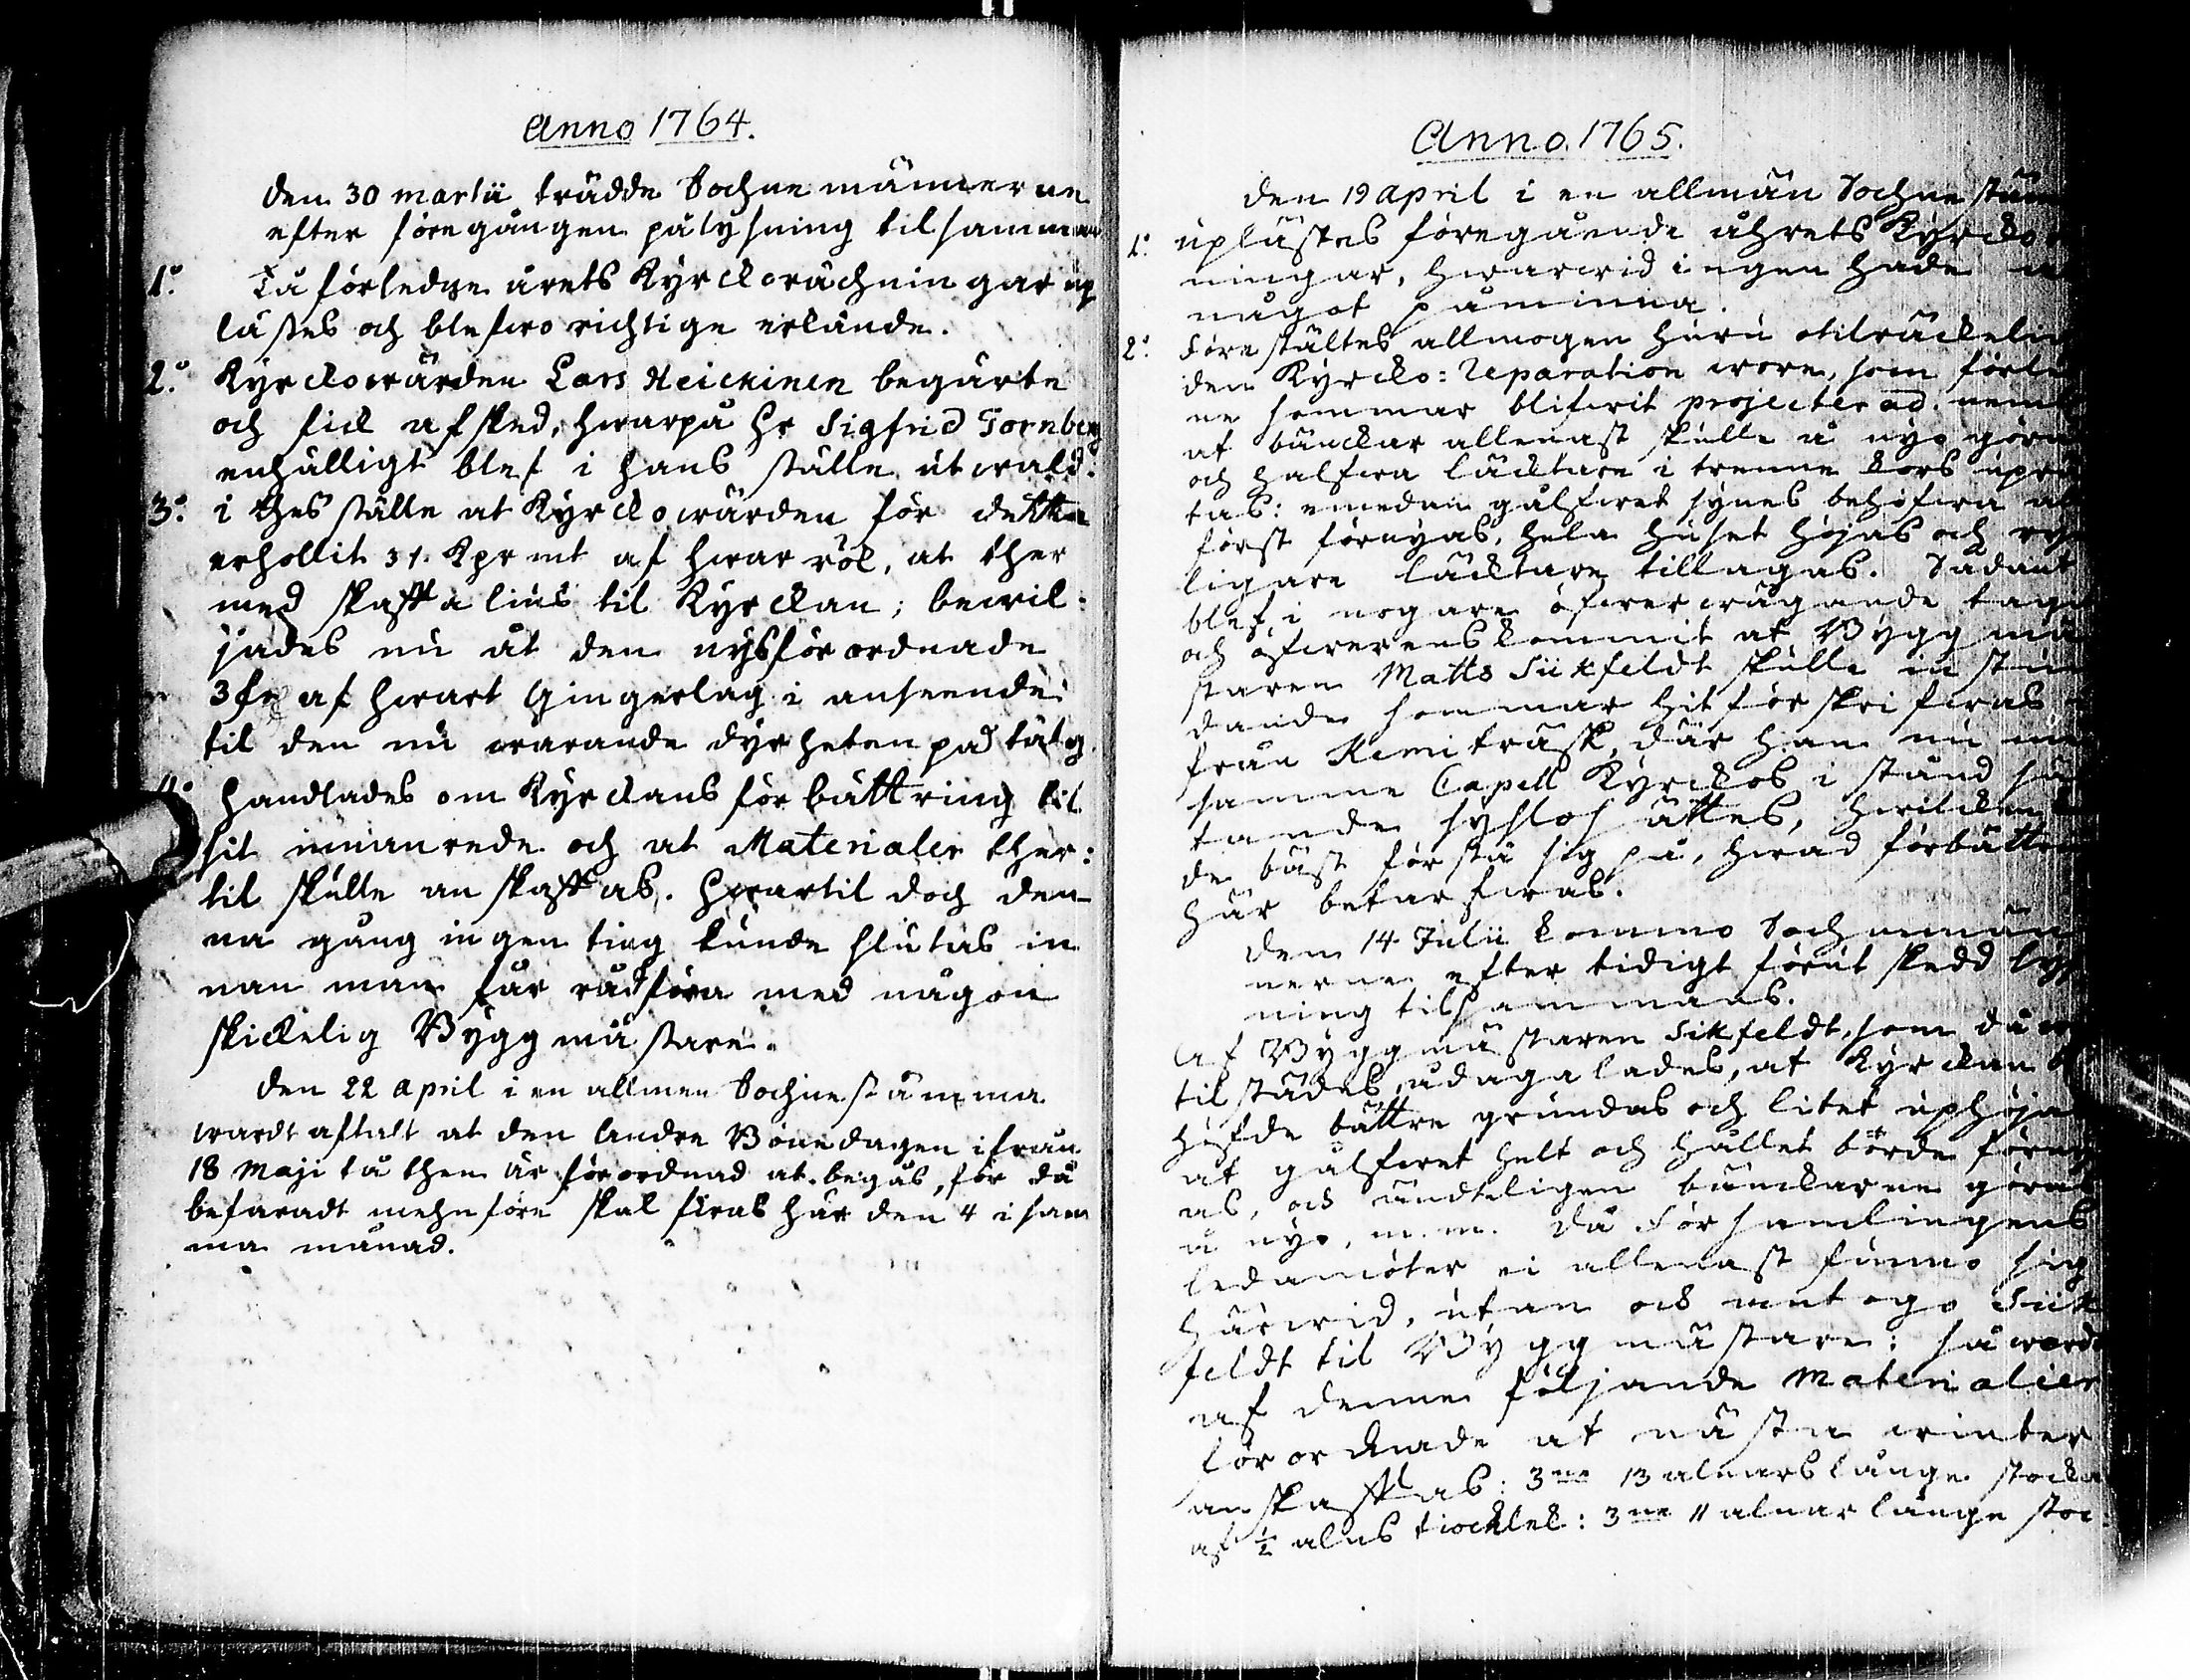 Anno 1764.
den 30 martii trädde Sochne männerne
efter föregången pålysning tilsamman
1:o Tå förledne årets Kyrckoräckningar up
lästes och blefwo richtige erkände.
2:o Kyrckowärden Lars Keickinen begärte
och fick afsked, hwarpå Hr Sigfrid Tornberg
enhälligt blef i hans ställe utwald.
3:o i thes ställe at Kyrckowärden för detta
erhollit 31. Kpr mt af hwar rök, at ther
med skaffa lius til Kyrckan; bewil:
jades nu åt den nysförordnade
3 af hwart Gingerlag i anseende
til den nu warande dyrheten på tälg.
4:o Handlades om Kyrckans förbättring til
sit innanrede och at Materialer ther:
til skulle anskaffas. Hwartil doch den-
na gång ingen ting kunde slutas in
nan man får rådföra med någon
skickelig Byggmästare.
Den 22 april i en allmen Sochnestämma
wardt aftalt at den Andra Bönedagen ifrån
18 Maji tå then är förordnad at begås, för då
befaradt mehnföre skal firas här den 4 i sam
ma månad.
Anno 1765.
den 19 April i en allmän Sochnestäm
1:o uplästes föregående åhrets Kyrcko
ningar, hwarwid ingen hade
något påminna.
2:o Föreställtes allmogen huru otilräckelig
den Kyrcko: Reparation wore, som förle
ne sommar blifwit projecterad. neml
at bänckar allenast skulle å nyo göra
och halfwa läcktare i trenne kors uprä
tas: emedan gålfwet synes behöfwa al
först förnyas, hela huset höjas och ry
ligare läcktare tillagas. Sådant
blef i nogare öfwerwägande tagit
och öfwerenskommit at Byggmä
staren Matts Siikfeldt skulle in stun
dande sommar hit förskrifwas
från Kemiträsk, där han nu
samme Capell Kyrckos i stånd sä
tande sysslosättes, hwilcken
de bäst förstå sig på, hwad förbättr
här betarfwas.
Den 14 Julii kommo Sochnemän
nerne efter tidigt förut skedd lys
ning tilsammans.
Af Byggmästaren Siikfeldt, som då w
tilstädes, ådagalades, at Kyrckan b
höfde bättre grundas och litet uphöja
at gålfwet helt och hållet borde förny
as, och ändteligen bänckarne göras
å nyo, m. m. Då Församlingens
ledamöter ei allenast funno sig
härwid, utan ock antogo Siik
feldt til Byggmästare: så wordo
af denne följande Materialier
förordnade at nästa winter
anskaffas: 3ne 13 alnars långe stocka
af 1/2 alns tiocklek: 3ne 11 alnar långe stoc